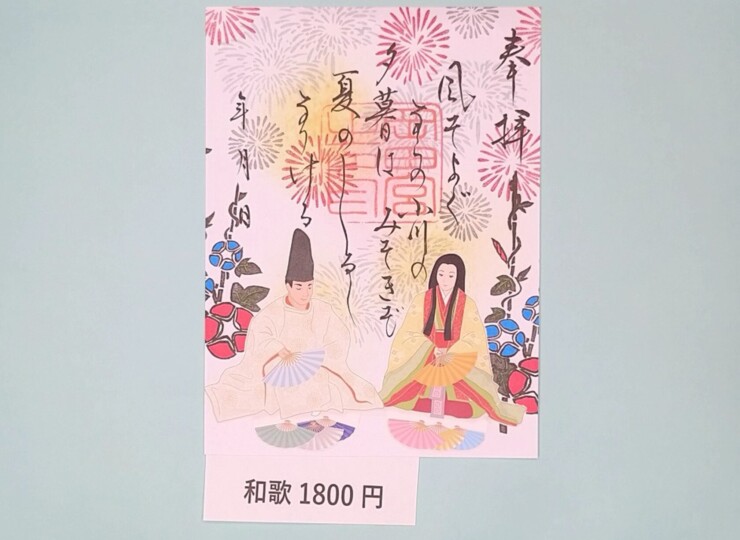 奉拝
風そよぐ
ならの小川の
夕暮は みそきぞ
夏のしるし
なりける
年 月 日
和歌 1800 円